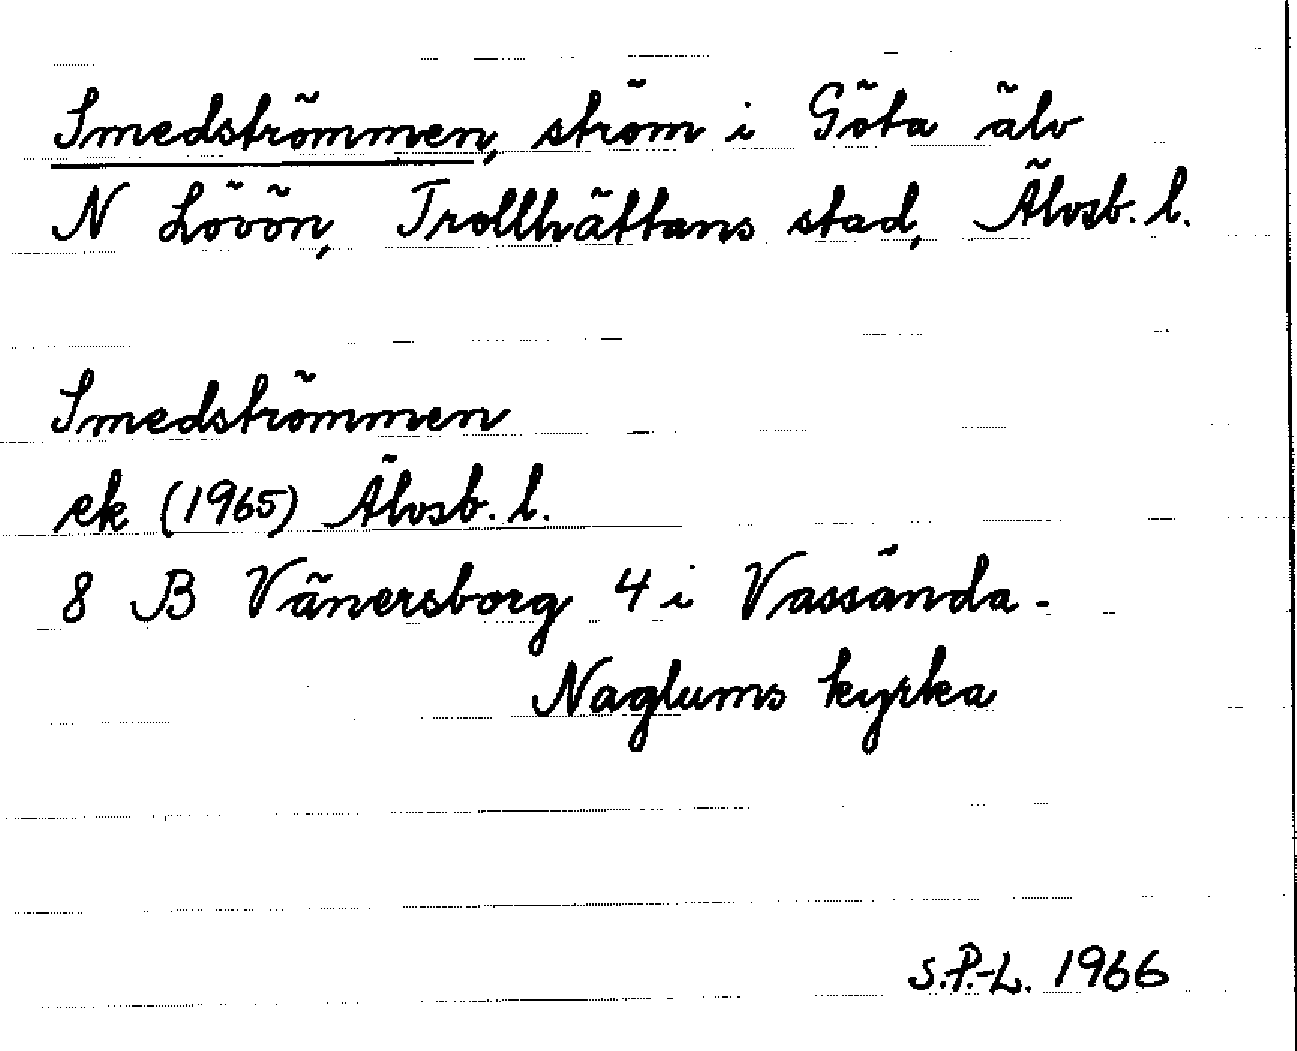 Smedströmmen, ström i Göta älv
N Lövön, Trollhättans stad, Älvsb. l.
Smedströmmen
ek (1965) Älvsb. l.
8 B Vänersborg 4 i Vassända-
Naglums kyrka
S.P.-L. 1966